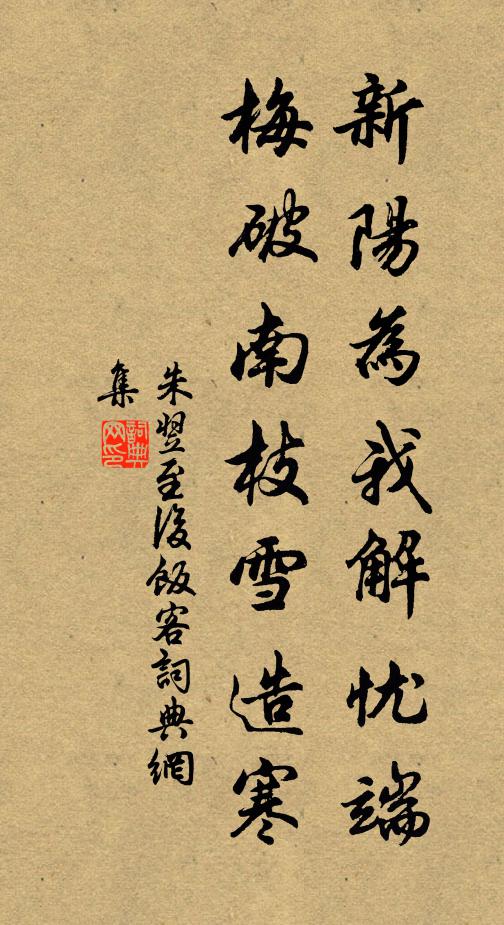 新陽為我解忧端
梅破南枝雪造寒
朱翌至後飯客詞典網
集
詞典
网印